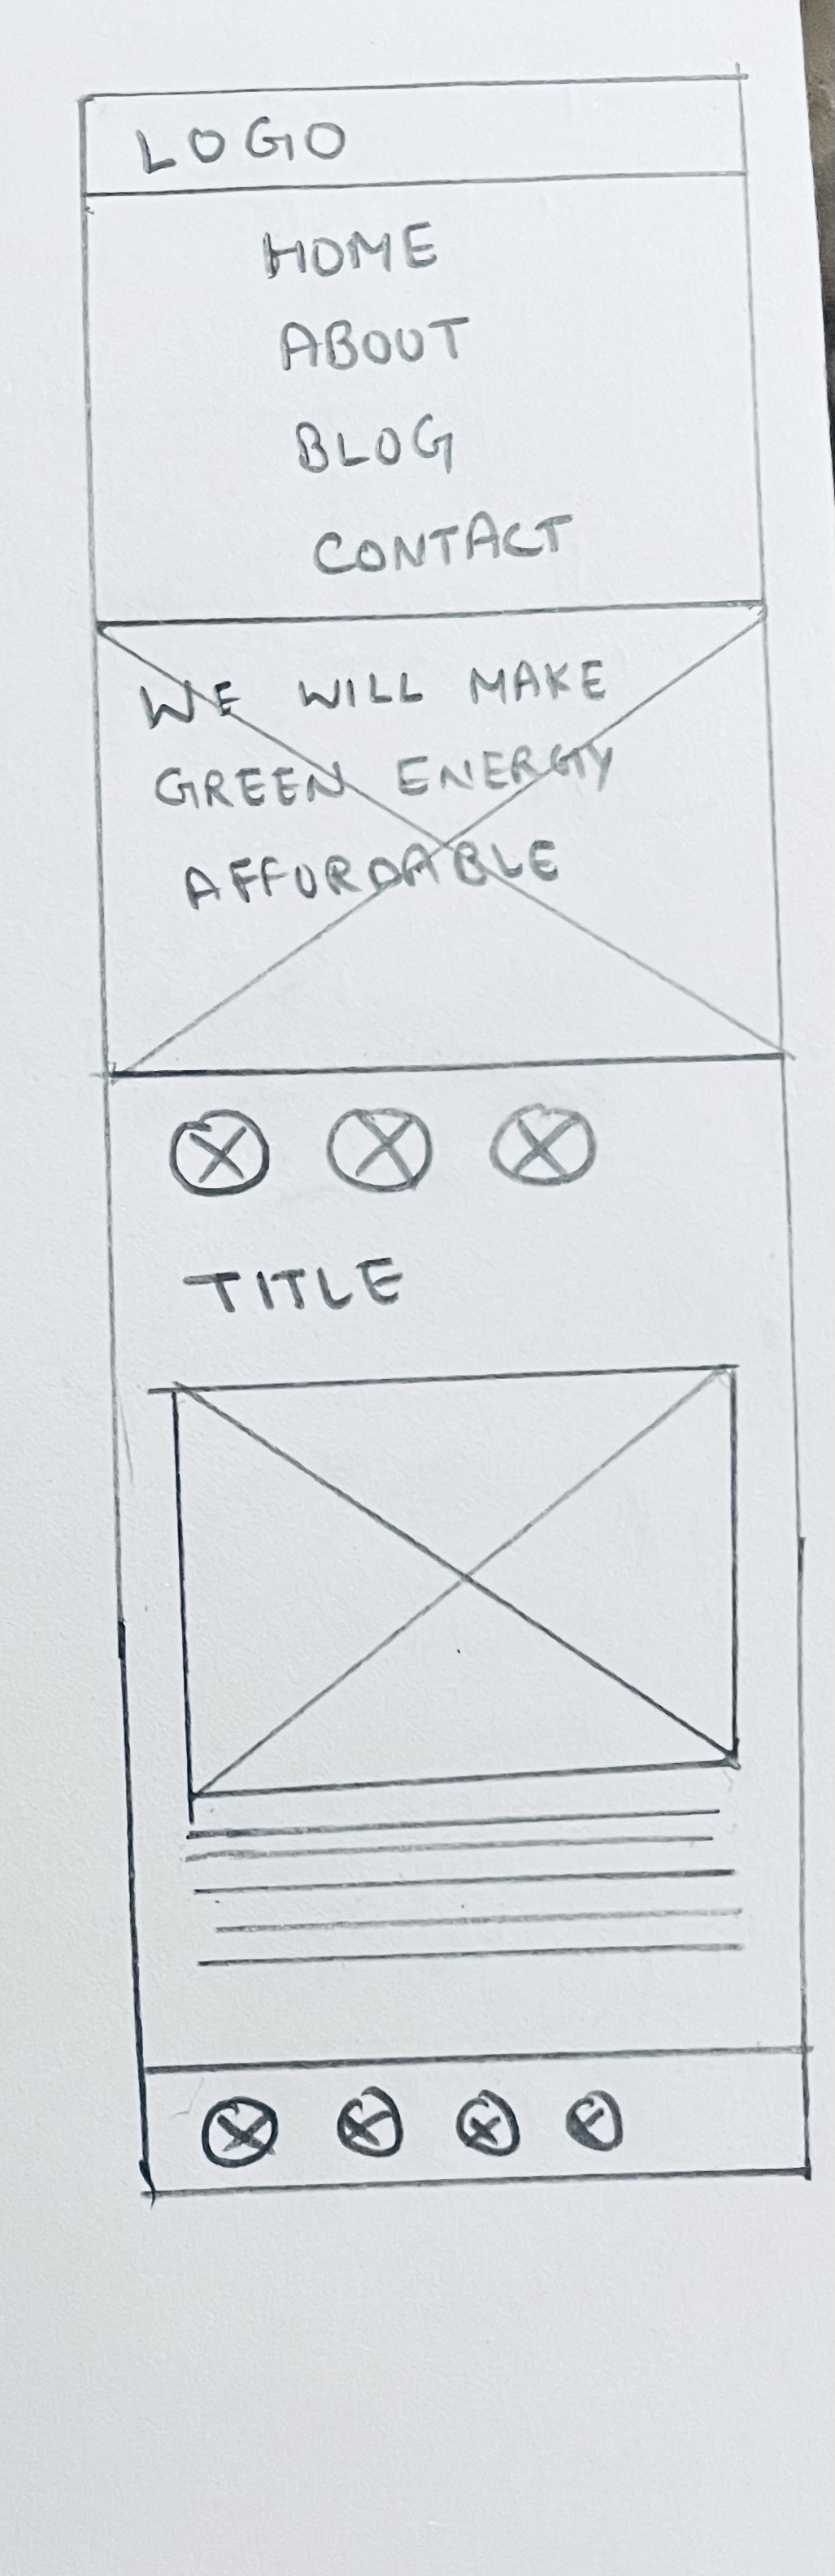 LOGO
HOME
ABOUT
BLOG
CONTACT
WE WILL MAKE
GREEN ENERGY
AFFORDABLE
TITLE